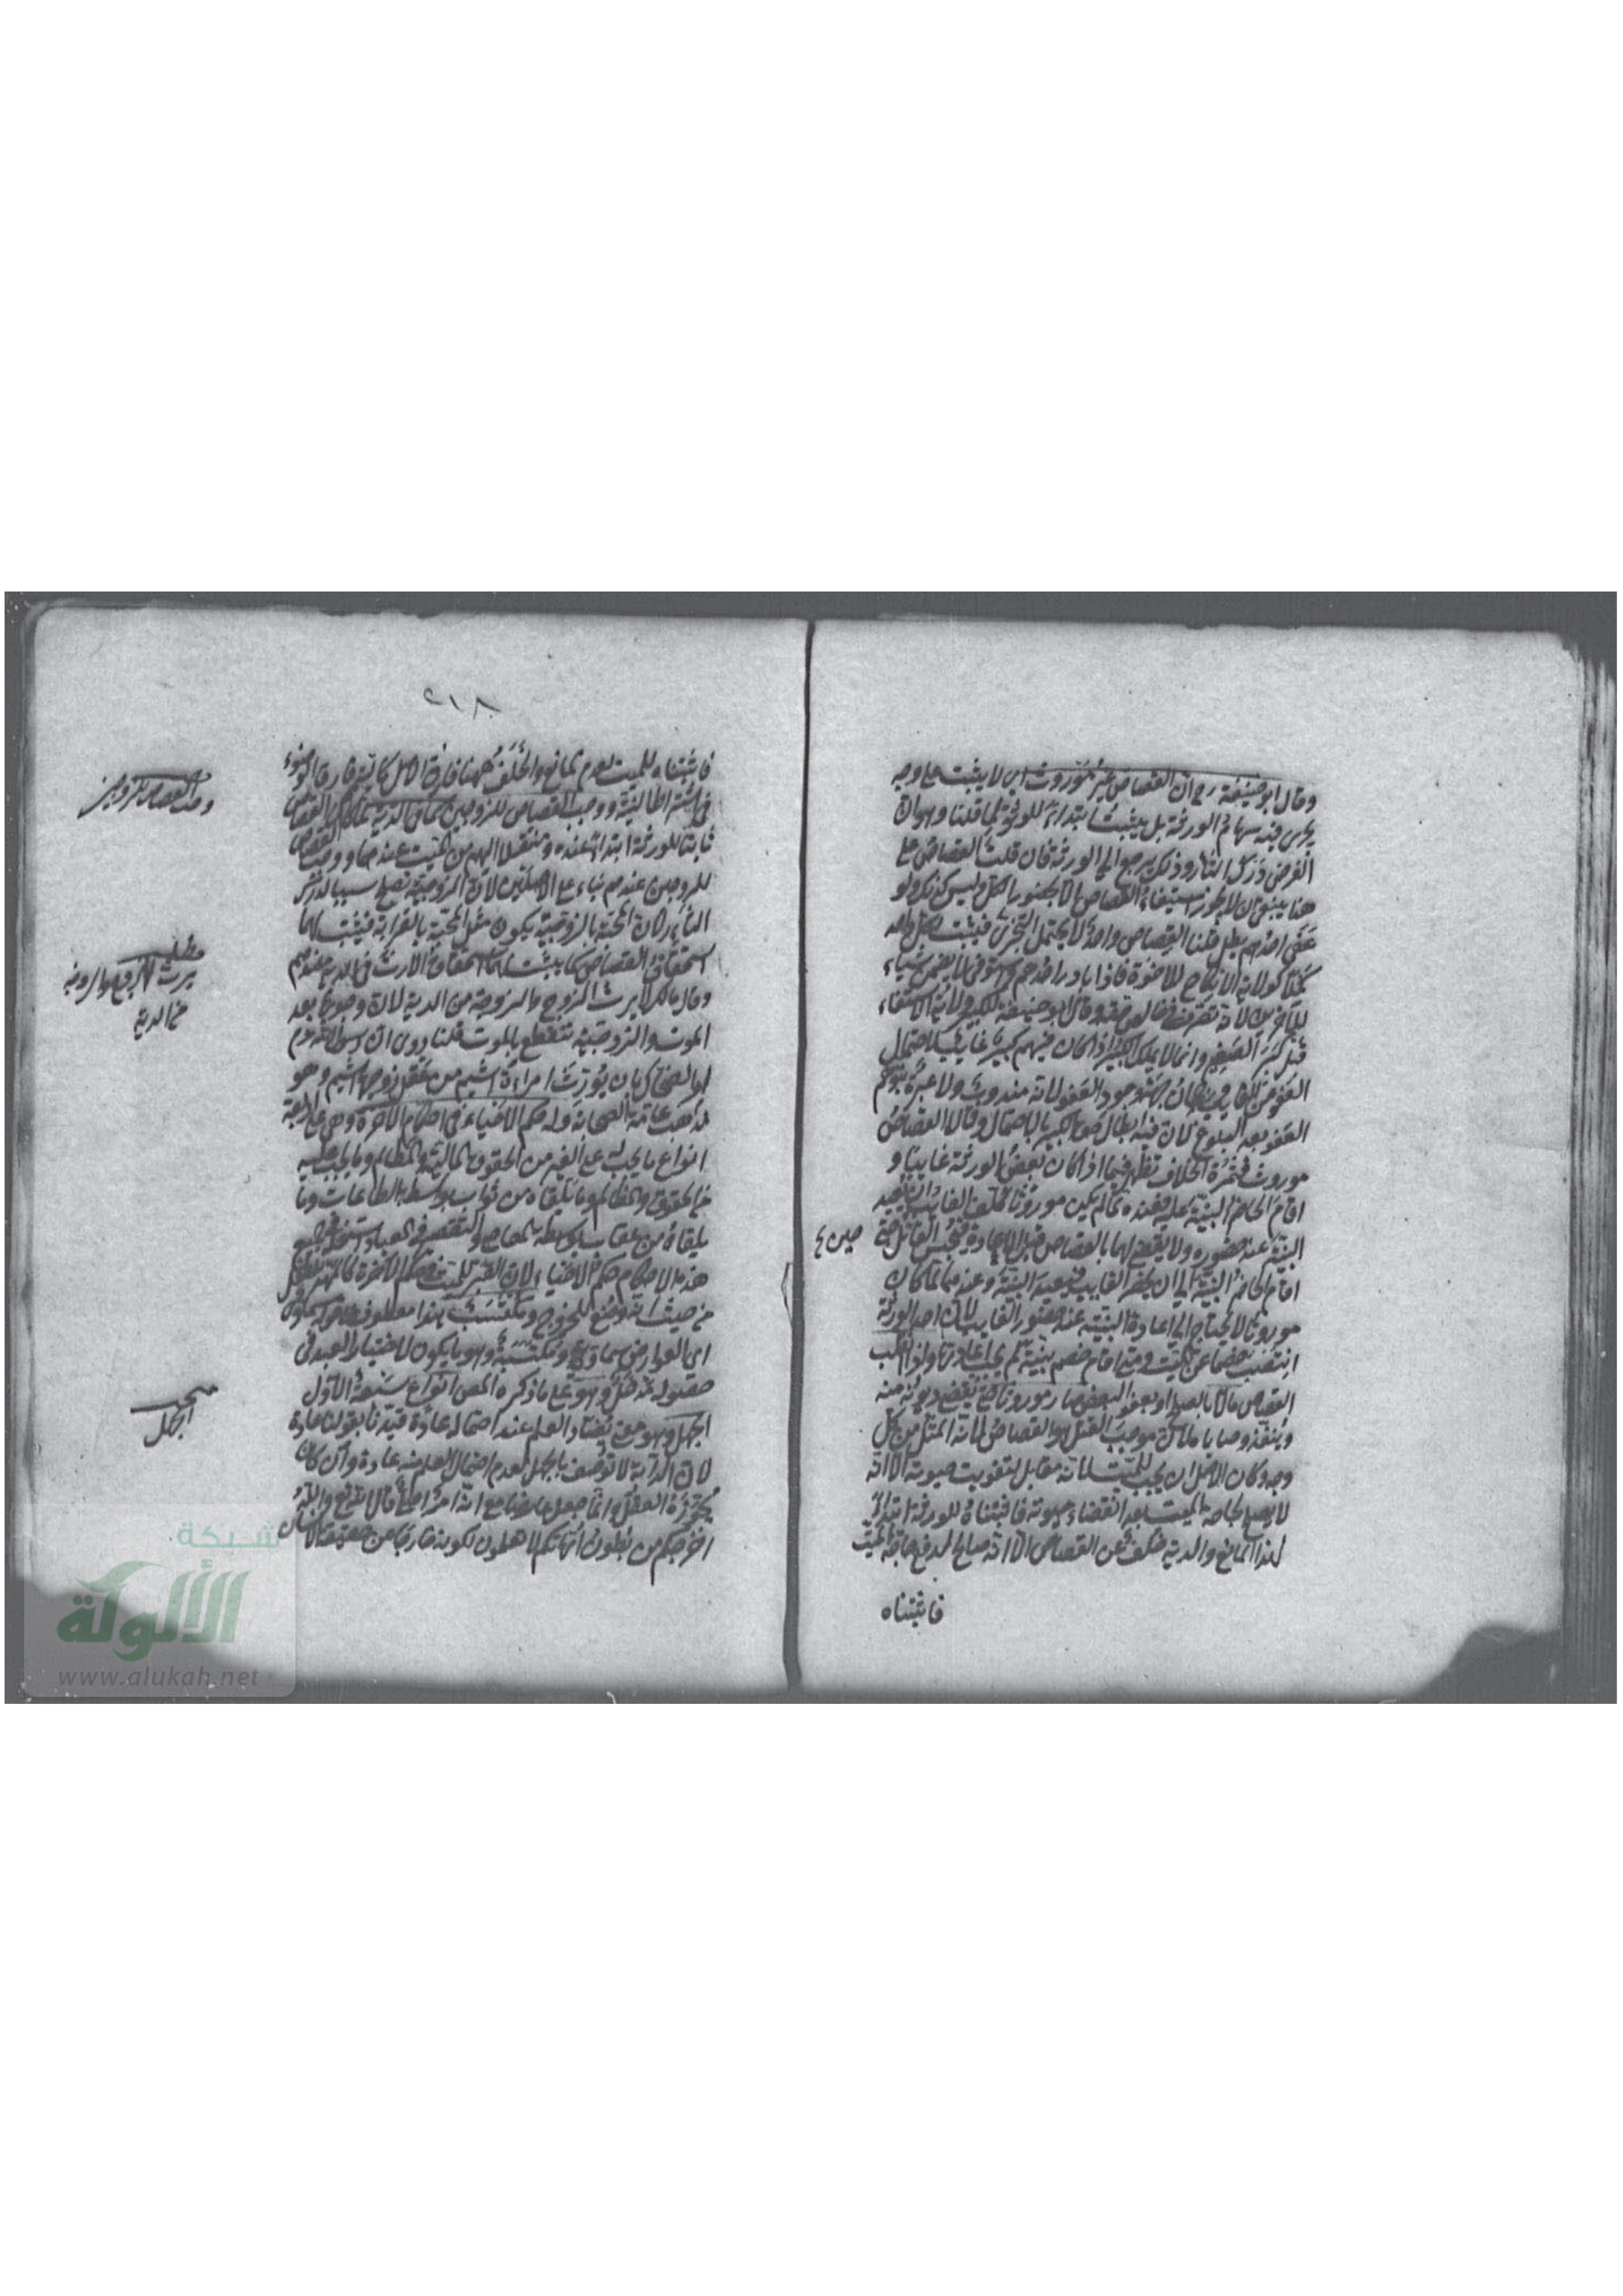 وقال ابو حنيفة رح ان القصاص غير موروث اي لا يثبت على وجه
يجرى فيه سهام الورثة بل يثبت ابتداء للورثة لما قلنا وهو ان
الغرض درك الثار وذلك يرجع الى الورثة فان قلت القصاص على
هذا ينبغي ان لا يجوز استيفاء القصاص الا بحضور الكل وليس كذلك ولو
عفى احدهم بطل قلنا القصاص واحد لا يحتمل التجزى فيثبت لكل واحد
كملا كولاية الانكاح للاخوة فاذا بادر احدهم واستوفى لا يضمن شياء
للآخرين لانه تصرف في خالص حقه وقال ابو حنيفة للكبير ولاية الاستيفاء
قبل كبر الصغير وانما لا يملك الكبير اذا كان فيهم كبير غايب لاحتمال
العفو من الغايب ورجحان جهة وجود العفو لانه مندوب ولا عبرة بتوهم
العفو بعد البلوغ لان فيه ابطال حق الكبير بالاحتمال وقالا القصاص
موروث فثمرة الخلاف تظهر فيما اذا كان بعض الورثة غايبا و
اقام الحاضر البينة عليه فعنده لما لم يكن موروثا كلف الغايب ان يعيد
البينة عند حضوره ولا يقضى لهما بالقصاص قبل الاعادة فيحبس القاتل حتى
حين
اقام الحاضر البينة الى ان يحضر الغايب فيعيد البينة وعندهما لما كان
موروثا لا يحتاج الى اعادة البينة عند حضور الغايب لان احد الورثة
انتصب خصما عن الميت ومتى اقام خصم بينة لم يجب اعادتها واذا انقلب
القصاص مالا بالصلح او بعفو البعض صار موروثا حتى يقضى ديونه منه
وينفذ وصاياه لان موجب القتل هو القصاص لانه المثل من كل
وجه وكان الاصل ان يجب للميت لانه مقابل بتفويت حيوته الا انه
لا يصلح لحاجة الميت بعد انقضاء حيوته فاثبتناه للورثة ابتداء
لهذا المانع والدية خلف عن القصاص الا انه صالح لدفع حاجة الميت
فاثبتناه
٢١٨
فاثبتناه للميت لعدم المانع والخلف ههنا فارق الاصل كما فارق الوضوء
في اشتراط النية ووجب القصاص للزوجين كما في الدية
وجب القصاص للزوجين
ثابتا للورثة ابتداء عنده ومنتقلا اليهم من الميت عندهما ووجب القصاص
للزوجين عندهم بناء على الاصلين لان الزوجية تصلح سببا لدرك
الثار لان المحبة بالزوجية يكون مثل المحبة بالقرابة فيثبت لهما
استحقاق القصاص كما يثبت لهما استحقاق الارث في الدية عندهم
مطلب
يرث الزوج والزوجة
من الدية
وقال مالك لا يرث الزوج والزوجة من الدية لان وجوبها بعد
الموت والزوجية تنقطع بالموت قلنا روى ان رسول الله عم
امر الضحاك بان يورث امراءة اشيم من عقل زوجها اشيم وهو
مذهب عامة الصحابة وله حكم الاحياء في احكام الآخرة وهي على اربعة
انواع ما يجب له على الغير من الحقوق المالية والمظالم وما يجب عليه
من الحقوق والمظالم وما يلقاه من ثواب بواسطة الطاعات وما
يلقاه من عقاب بواسطة المعاصي والتقصير في العبادات
هذه الاحكام حكم الاحياء لان القبر للميت في حكم الآخرة كالمهد للطفل
من حيث انه وضع للخروج ومكتسب هذا معطوف على قوله سماوي
اي العوارض سماوي ومكتسبة وهو ما يكون لاختيار العبد في
حصوله مدخل وهو على ما ذكره المصن انواع سبعة الاول
مبحث
الجهل
الجهل وهو معنى يضاد العلم عند احتماله عادة قيدنا بقولنا عادة
لان الدابة لا توصف بالجهل لعدم احتمال العلم منه عادة وان كان
يجوزه العقل وانما جعل عارضا مع انه امر اصلي قال الله تع والله
اخرجكم من بطون امهاتكم لا تعلمون لكونه خارجا عن حقيقة الانسان
شبكة
الألوكة
www.alukah.net